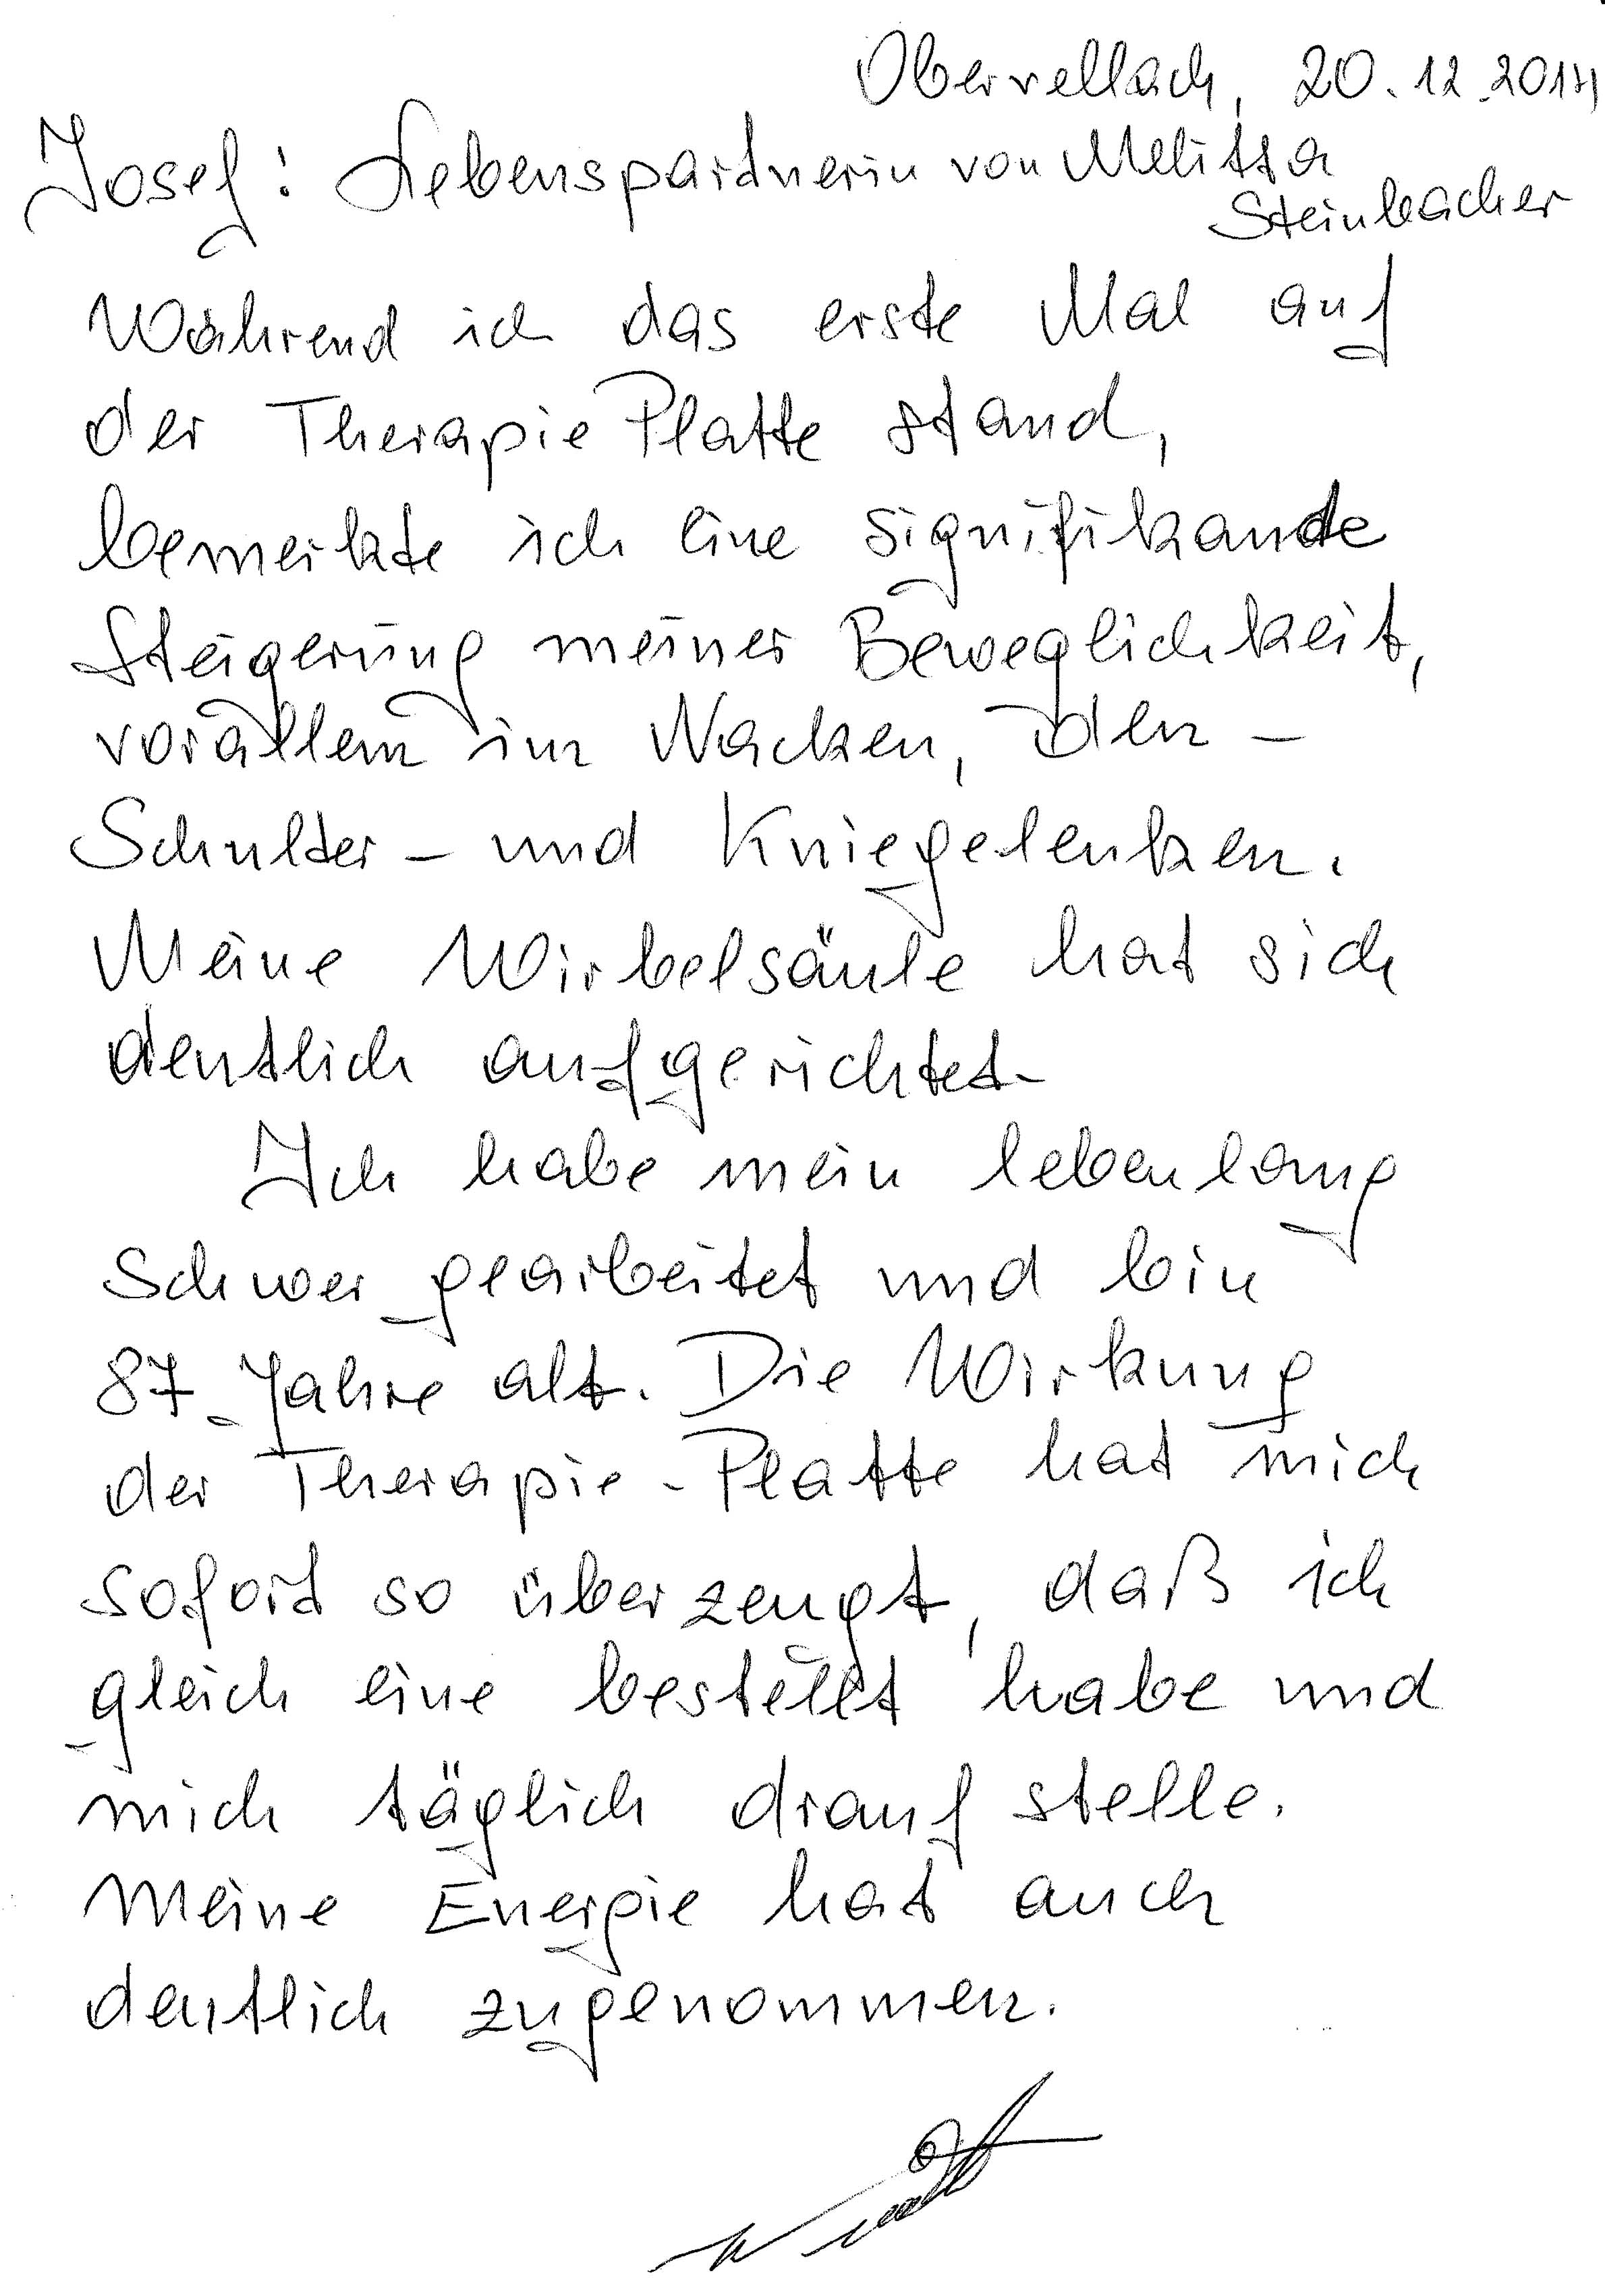 Obervellach, 20.12.2014
Josef: Lebenspartnerin von Melitta
Steinbacher
Während ich das erste Mal auf
der Therapie Platte stand,
bemerkte ich eine signifikante
Steigerung meiner Beweglichkeit,
vorallem im Nacken, den -
Schulter - und Kniegelenken.
Meine Wirbelsäule hat sich
deutlich aufgerichtet-
Ich habe mein lebenlang
schwer gearbeitet und bin
87 Jahre alt. Die Wirkung
der Therapie-Platte hat mich
sofort so überzeugt, daß ich
gleich eine bestellt habe und
mich täglich drauf stelle.
Meine Energie hat auch
deutlich zugenommen.